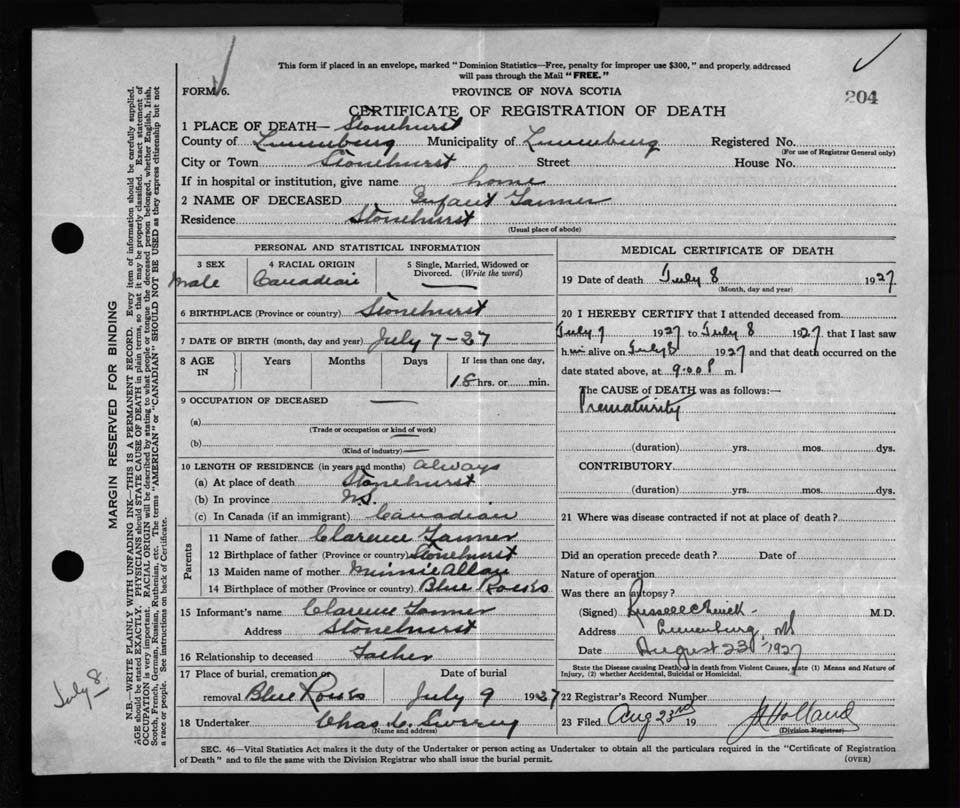 This form if placed in an envelope, marked "Dominion Statistics—Free, penalty for improper use $300," and properly addressed
will pass through the Mail "FREE."
FORM 6.
PROVINCE OF NOVA SCOTIA
204
CERTIFICATE OF REGISTRATION OF DEATH
1 PLACE OF DEATH— Stonehurst
County of Lunenburg Municipality of Lunenburg Registered No.
(For use of Registrar General only)
City or Town Stonehurst Street House No.
If in hospital or institution, give name home
2 NAME OF DECEASED Infant Tanner
Residence Stonehurst
(Usual place of abode)
PERSONAL AND STATISTICAL INFORMATION
3 SEX
Male
4 RACIAL ORIGIN
Canadian
5 Single, Married, Widowed or
Divorced. (Write the word)
6 BIRTHPLACE (Province or country) Stonehurst
7 DATE OF BIRTH (month, day and year) July 7-27
8 AGE IN
Years Months Days
If less than one day,
18 hrs. or min.
9 OCCUPATION OF DECEASED
(a)
(Trade or occupation or kind of work)
(b)
(Kind of industry)
10 LENGTH OF RESIDENCE (in years and months) always
(a) At place of death Stonehurst
(b) In province N.S.
(c) In Canada (if an immigrant) Canadian
Parents
11 Name of father Clarence Tanner
12 Birthplace of father (Province or country) Stonehurst
13 Maiden name of mother Minnie Allan
14 Birthplace of mother (Province or country) Blue Rocks
15 Informant's name Clarence Tanner
Address Stonehurst
16 Relationship to deceased Father
17 Place of burial, cremation or
removal Blue Rocks
Date of burial
July 9 1927
18 Undertaker Chas
(Name and address)
MEDICAL CERTIFICATE OF DEATH
19 Date of death July 8 1927
(Month, day and year)
20 I HEREBY CERTIFY that I attended deceased from
July 7 1927 to July 8 1927 that I last saw
him alive on July 8 1927 and that death occurred on the
date stated above, at 9.00 P m.
The CAUSE OF DEATH was as follows:—
Prematurity
(duration) yrs. mos. dys.
CONTRIBUTORY
(duration) yrs. mos. dys.
21 Where was disease contracted if not at place of death?
Did an operation precede death? Date of
Nature of operation
Was there an autopsy?
(Signed) Russell M.D.
Address Lunenburg, NS
Date August 23 1927
State the Disease causing Death, or in death from Violent Causes, state (1) Means and Nature of
Injury, (2) whether Accidental, Suicidal or Homicidal.
22 Registrar's Record Number
23 Filed Aug 23rd 19 Holland
(Division Registrar)
SEC. 46—Vital Statistics Act makes it the duty of the Undertaker or person acting as Undertaker to obtain all the particulars required in the "Certificate of Registration
of Death" and to file the same with the Division Registrar who shall issue the burial permit.
(OVER)
MARGIN RESERVED FOR BINDING
N.B.—WRITE PLAINLY WITH UNFADING INK—THIS IS A PERMANENT RECORD. Every item of information should be carefully supplied.
AGE should be stated EXACTLY. PHYSICIANS should STATE CAUSE OF DEATH in plain terms, so that it may be properly classified. Exact statement of
OCCUPATION is very important. RACIAL ORIGIN will be described by stating to what people or tongue the deceased person belonged, whether English, Irish,
Scotch, French, German, Russian, Ruthenian, etc. The terms "AMERICAN" or "CANADIAN" SHOULD NOT BE USED as they express citizenship but not
a race or people. See instructions on back of Certificate.
July 8